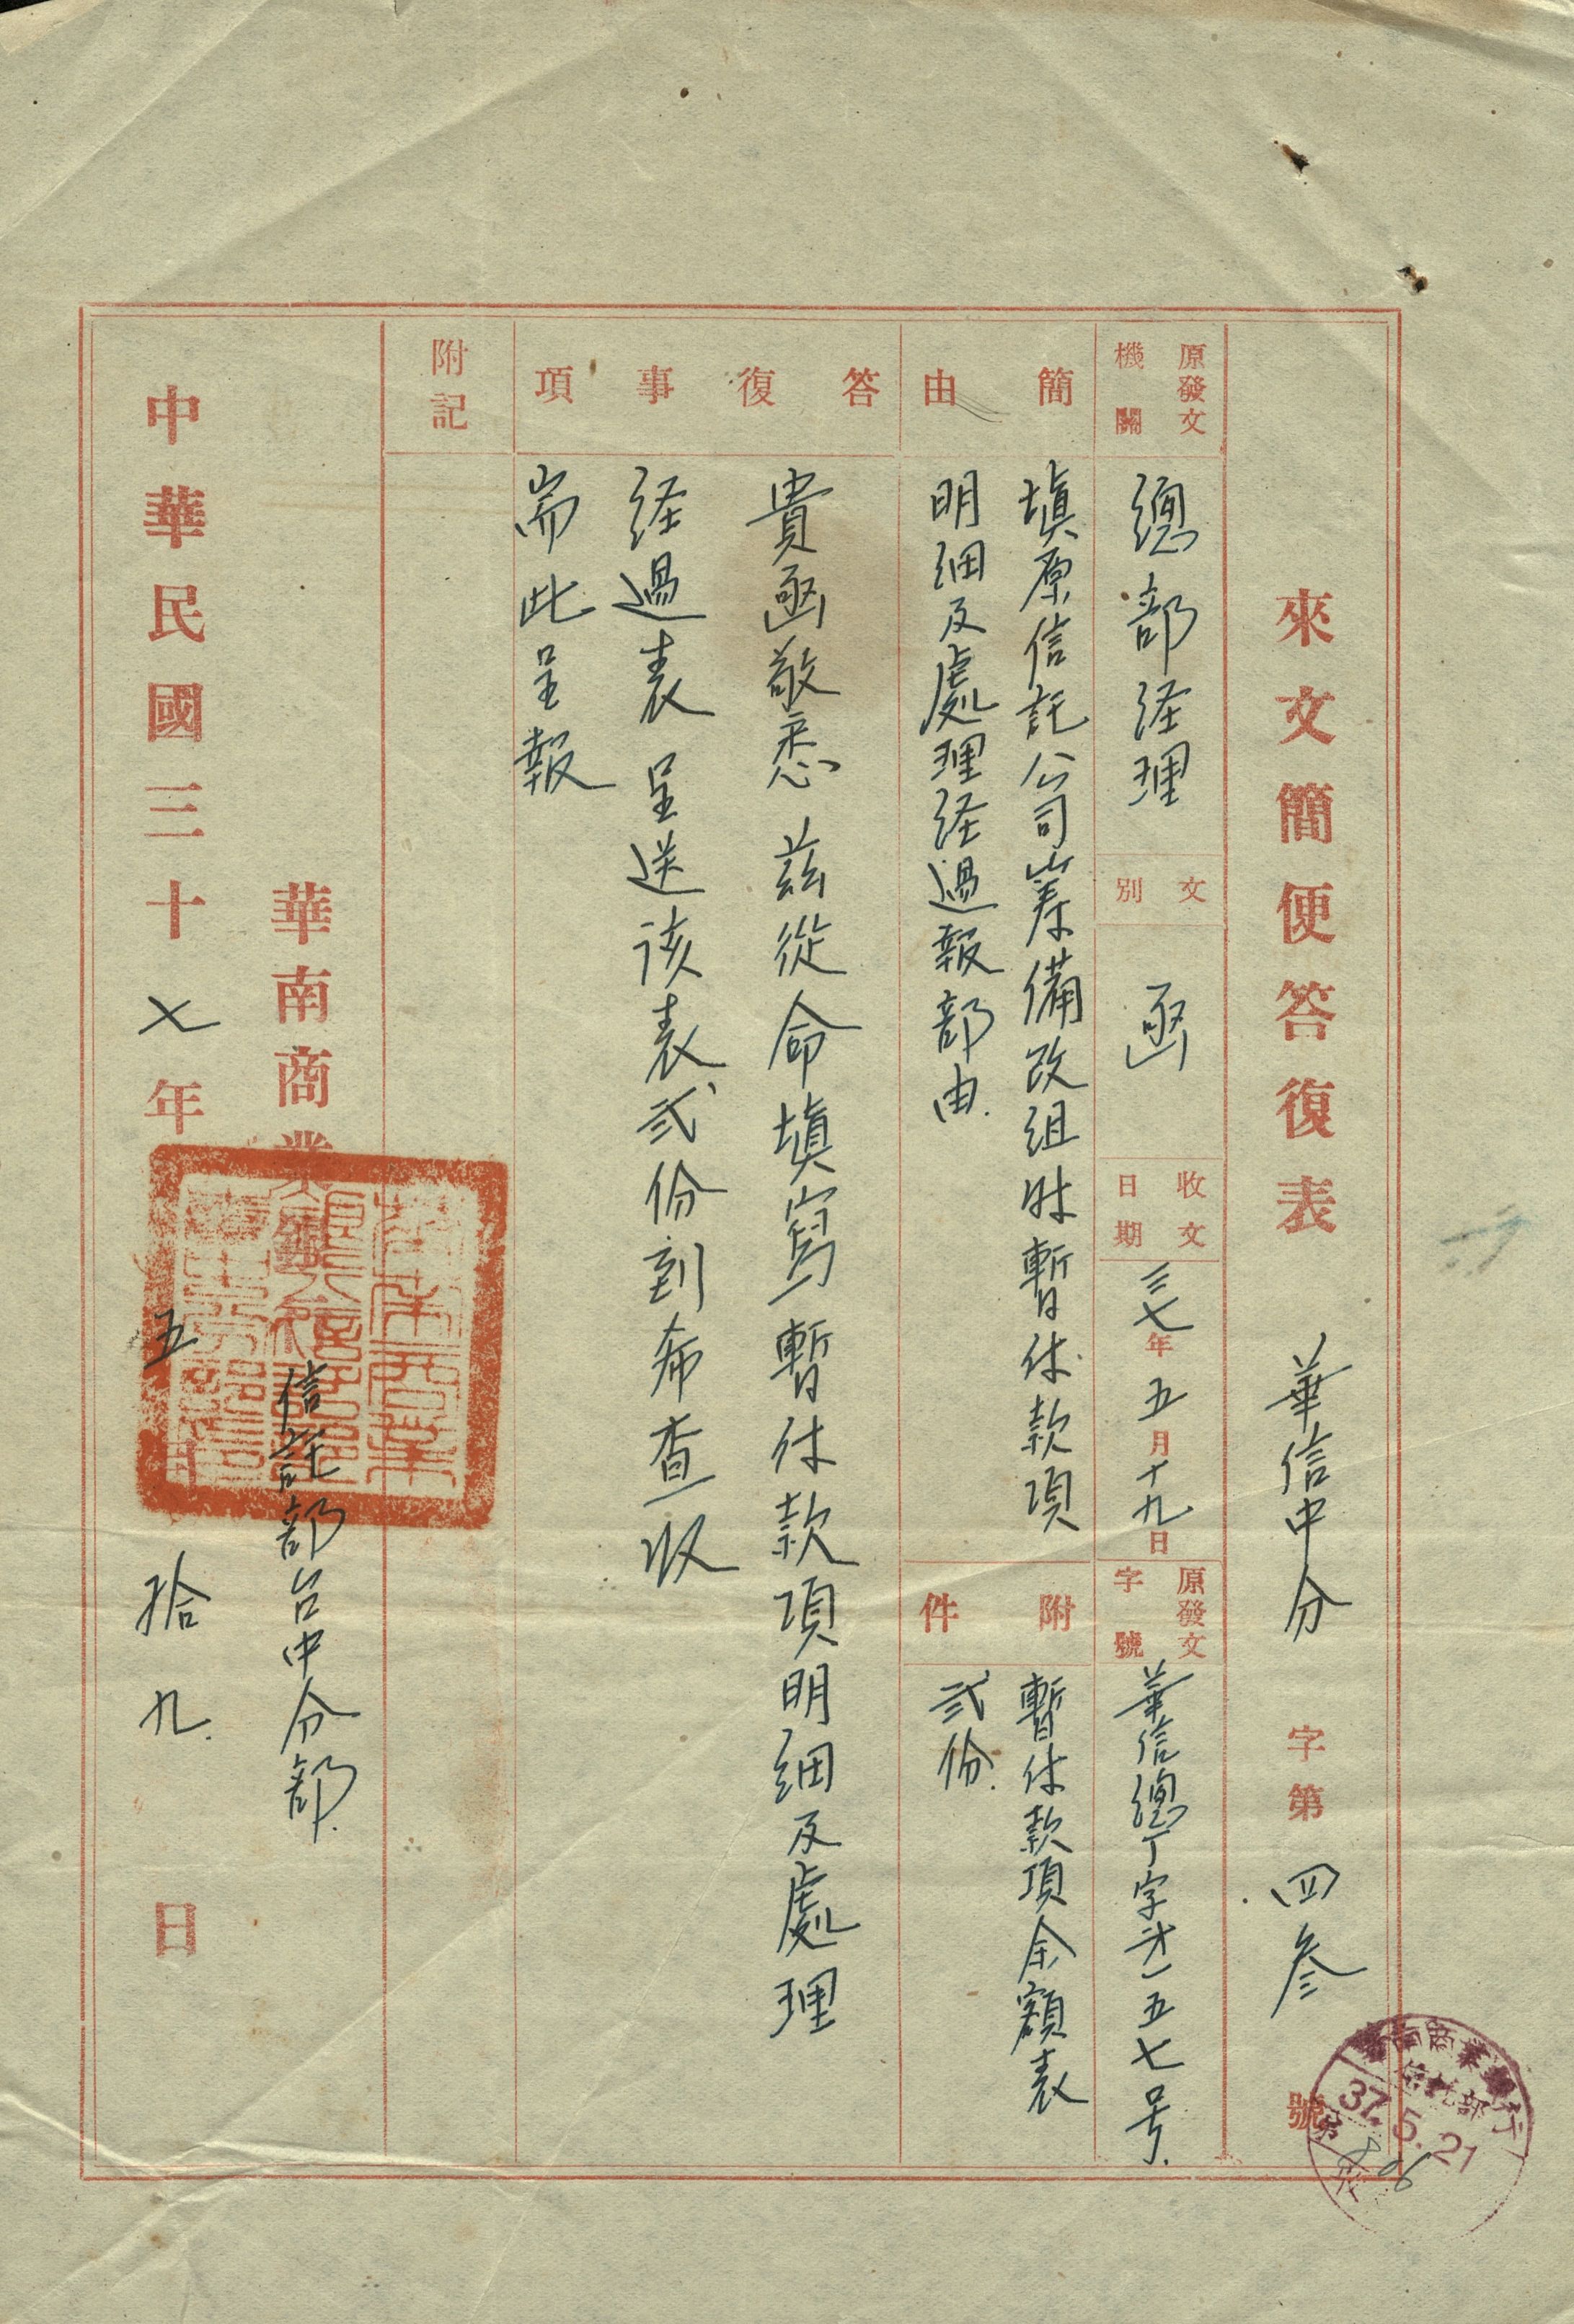 來文簡便答復表 華信中分字第四參號
原發文機關 總部经理
文別 函
收文日期 三七年五月十九日
原發文字號 華信總丁字第一五七号.
簡由
填原信託公司籌備改組时暫付款項
明细及處理经過報部由.
附件
暫付款項余額表
弍份.
答復事項
貴函敬悉 兹從命填寫暫付款項明细及處理
经過表 呈送该表弍份到希查收
耑此呈報
附記
華南商業銀
信託部台中分部.
中華民國三十七年五月拾九日
華南商業銀行
信托部
37.5.21